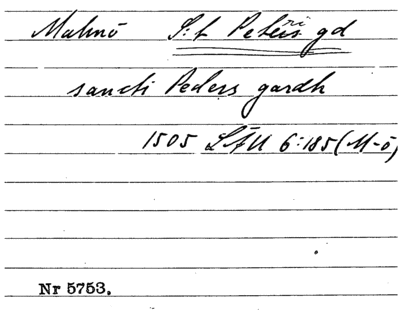 Malmö S:t Petri gd
sancti Peders gardh
1505 LÄU 6:185 (M-ö)
Nr 5753.